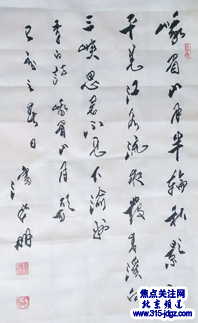 峨眉山月半輪秋影入
平羌江水流夜發清溪向
三峽思君不見下渝州
李白詩峨眉山月歌
焦点关注网
北京频道
www.315-jdgz.com